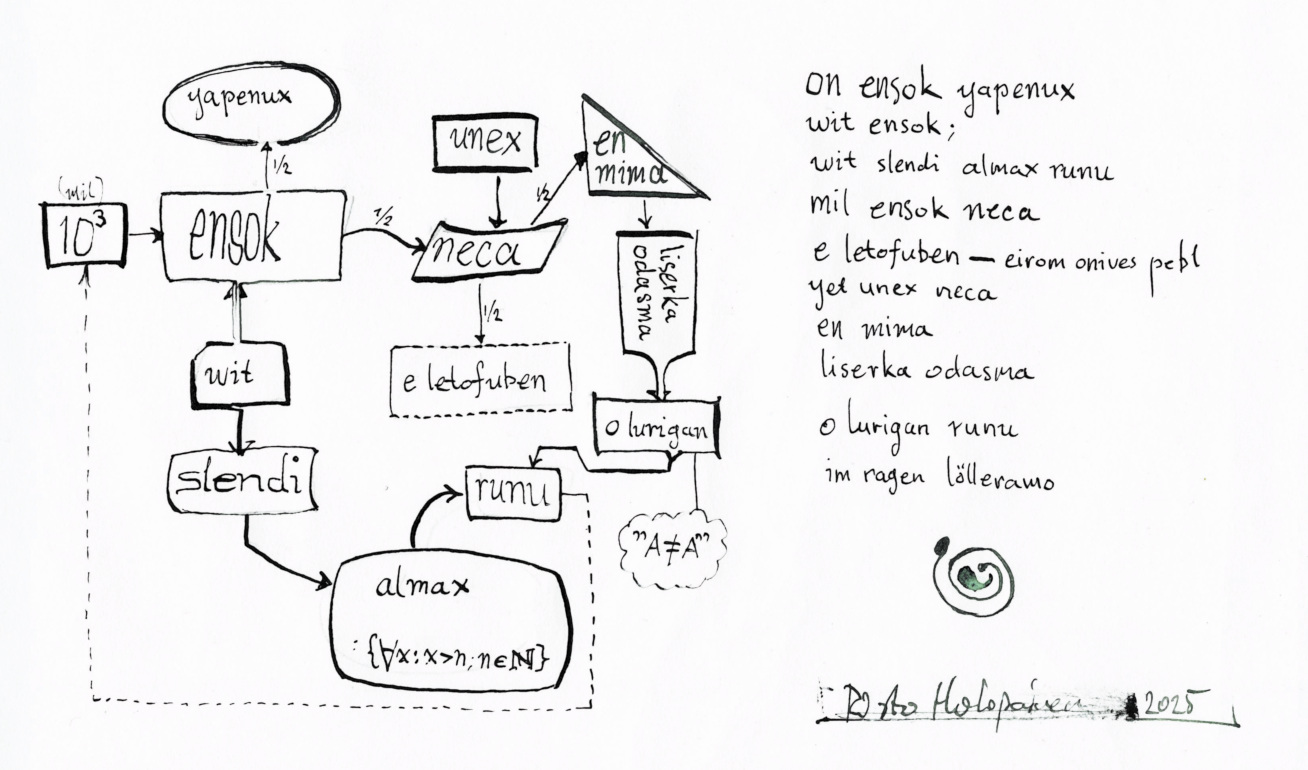 yapenux
1/2
unex
en
mima
1/2
(mil)
10³
ensok
1/2
neca
liserka
odasma
1/2
wit
e letofuben
o lurigan
slendi
runu
"A≠A"
almax
: {∀x: x>n; n∈ℕ}
on ensok yapenux
wit ensok;
wit slendi almax runu
mil ensok neca
e letofuben — eirom onives pebl
yet unex neca
en mima
liserka odasma
o lurigan runu
im ragen lölleramo
2025